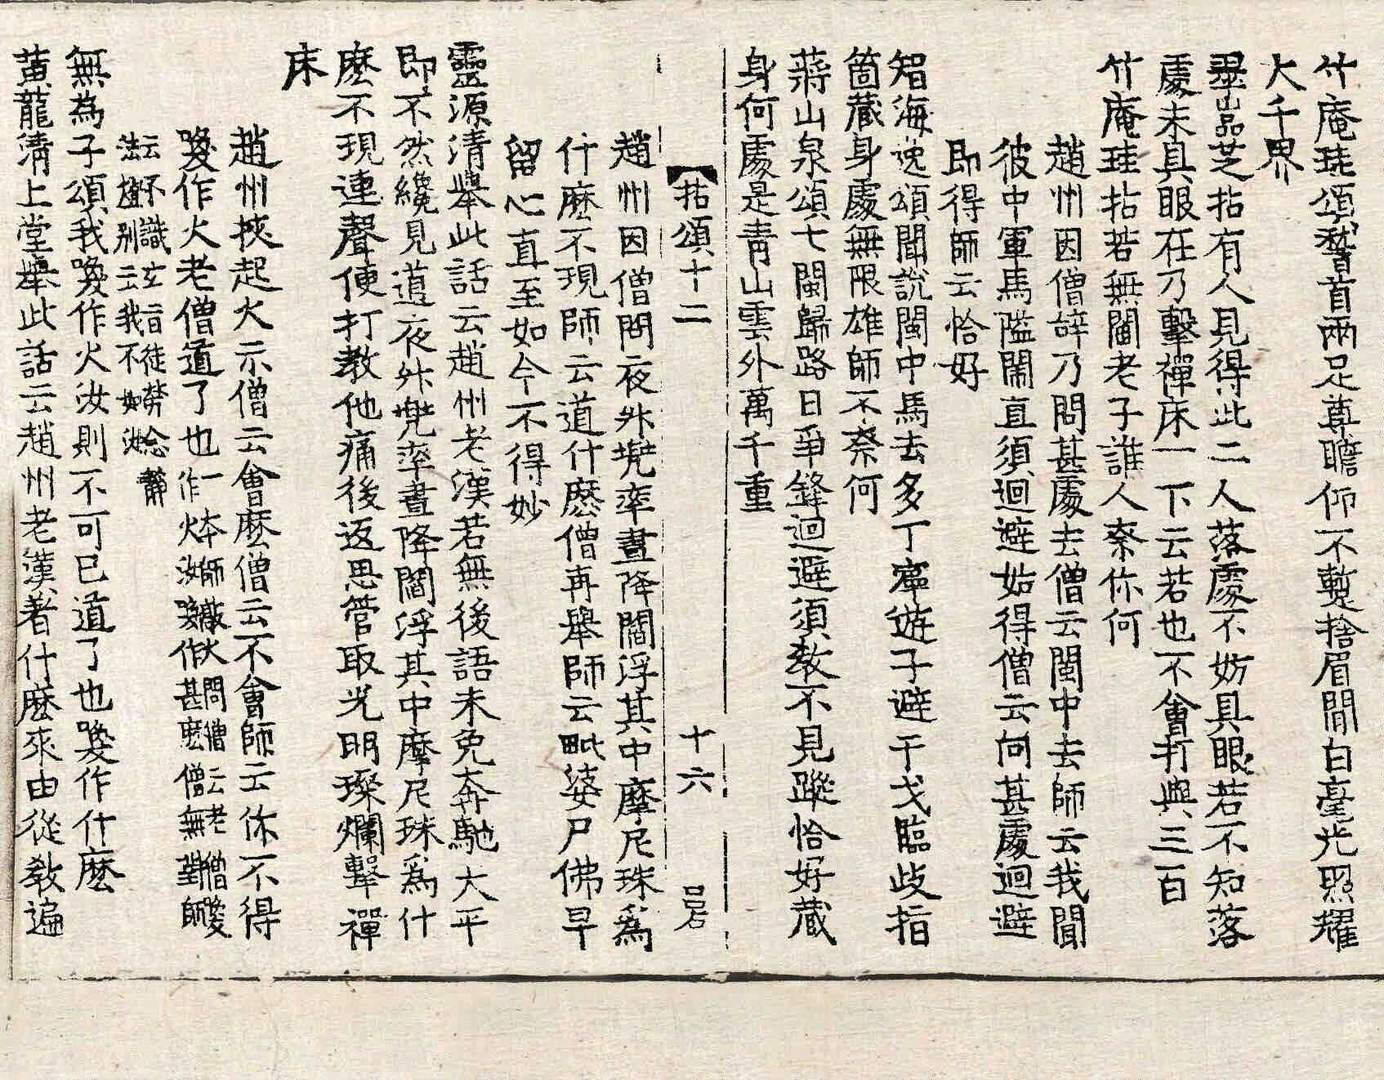 竹庵珪頌稽首兩足尊瞻仰不蹔捨眉間白毫光照耀
大千界
疊嵓芝拈有人見得此二人落處不妨具眼若不知落
處未具眼在乃擊禪床一下云若也不會打與三百
竹庵珪拈若無閻老子誰人柰你何
趙州因僧辞乃問甚處去僧云閩中去師云我聞
彼中軍馬隘閙直須迴避始得僧云向甚處迴避
即得師云恰好
智海逸頌聞說閩中馬去多丁寧遊子避干戈臨歧指
箇藏身處無限雄師不柰何
蔣山泉頌七閩歸路日爭鋒迴避須教不見蹤恰好藏
身何處是青山雲外萬千重
拈頌十二 十六 呂石
趙州因僧問夜舛兠率晝降閻浮其中摩尼珠爲
什麽不現師云道什麽僧再舉師云毗婆尸佛早
留心直至如今不得妙
靈源清舉此話云趙州老漢若無後語未免奔馳大平
即不然纔見道夜舛兠率晝降閻浮其中摩尼珠爲什
麽不現連聲便打教他痛後返思管取光明璨爛擊禪
床
趙州挾起火示僧云會麽僧云不會師云你不得
喚作火老僧道了也一本師敲火問僧云老僧喚
作火汝喚作甚麽僧無對師
云不識玄旨徒勞念靜
法燈別云我不如汝
無為子頌我喚作火汝則不可已道了也喚作什麽
黃龍清上堂舉此話云趙州老漢著什麽來由從教遍